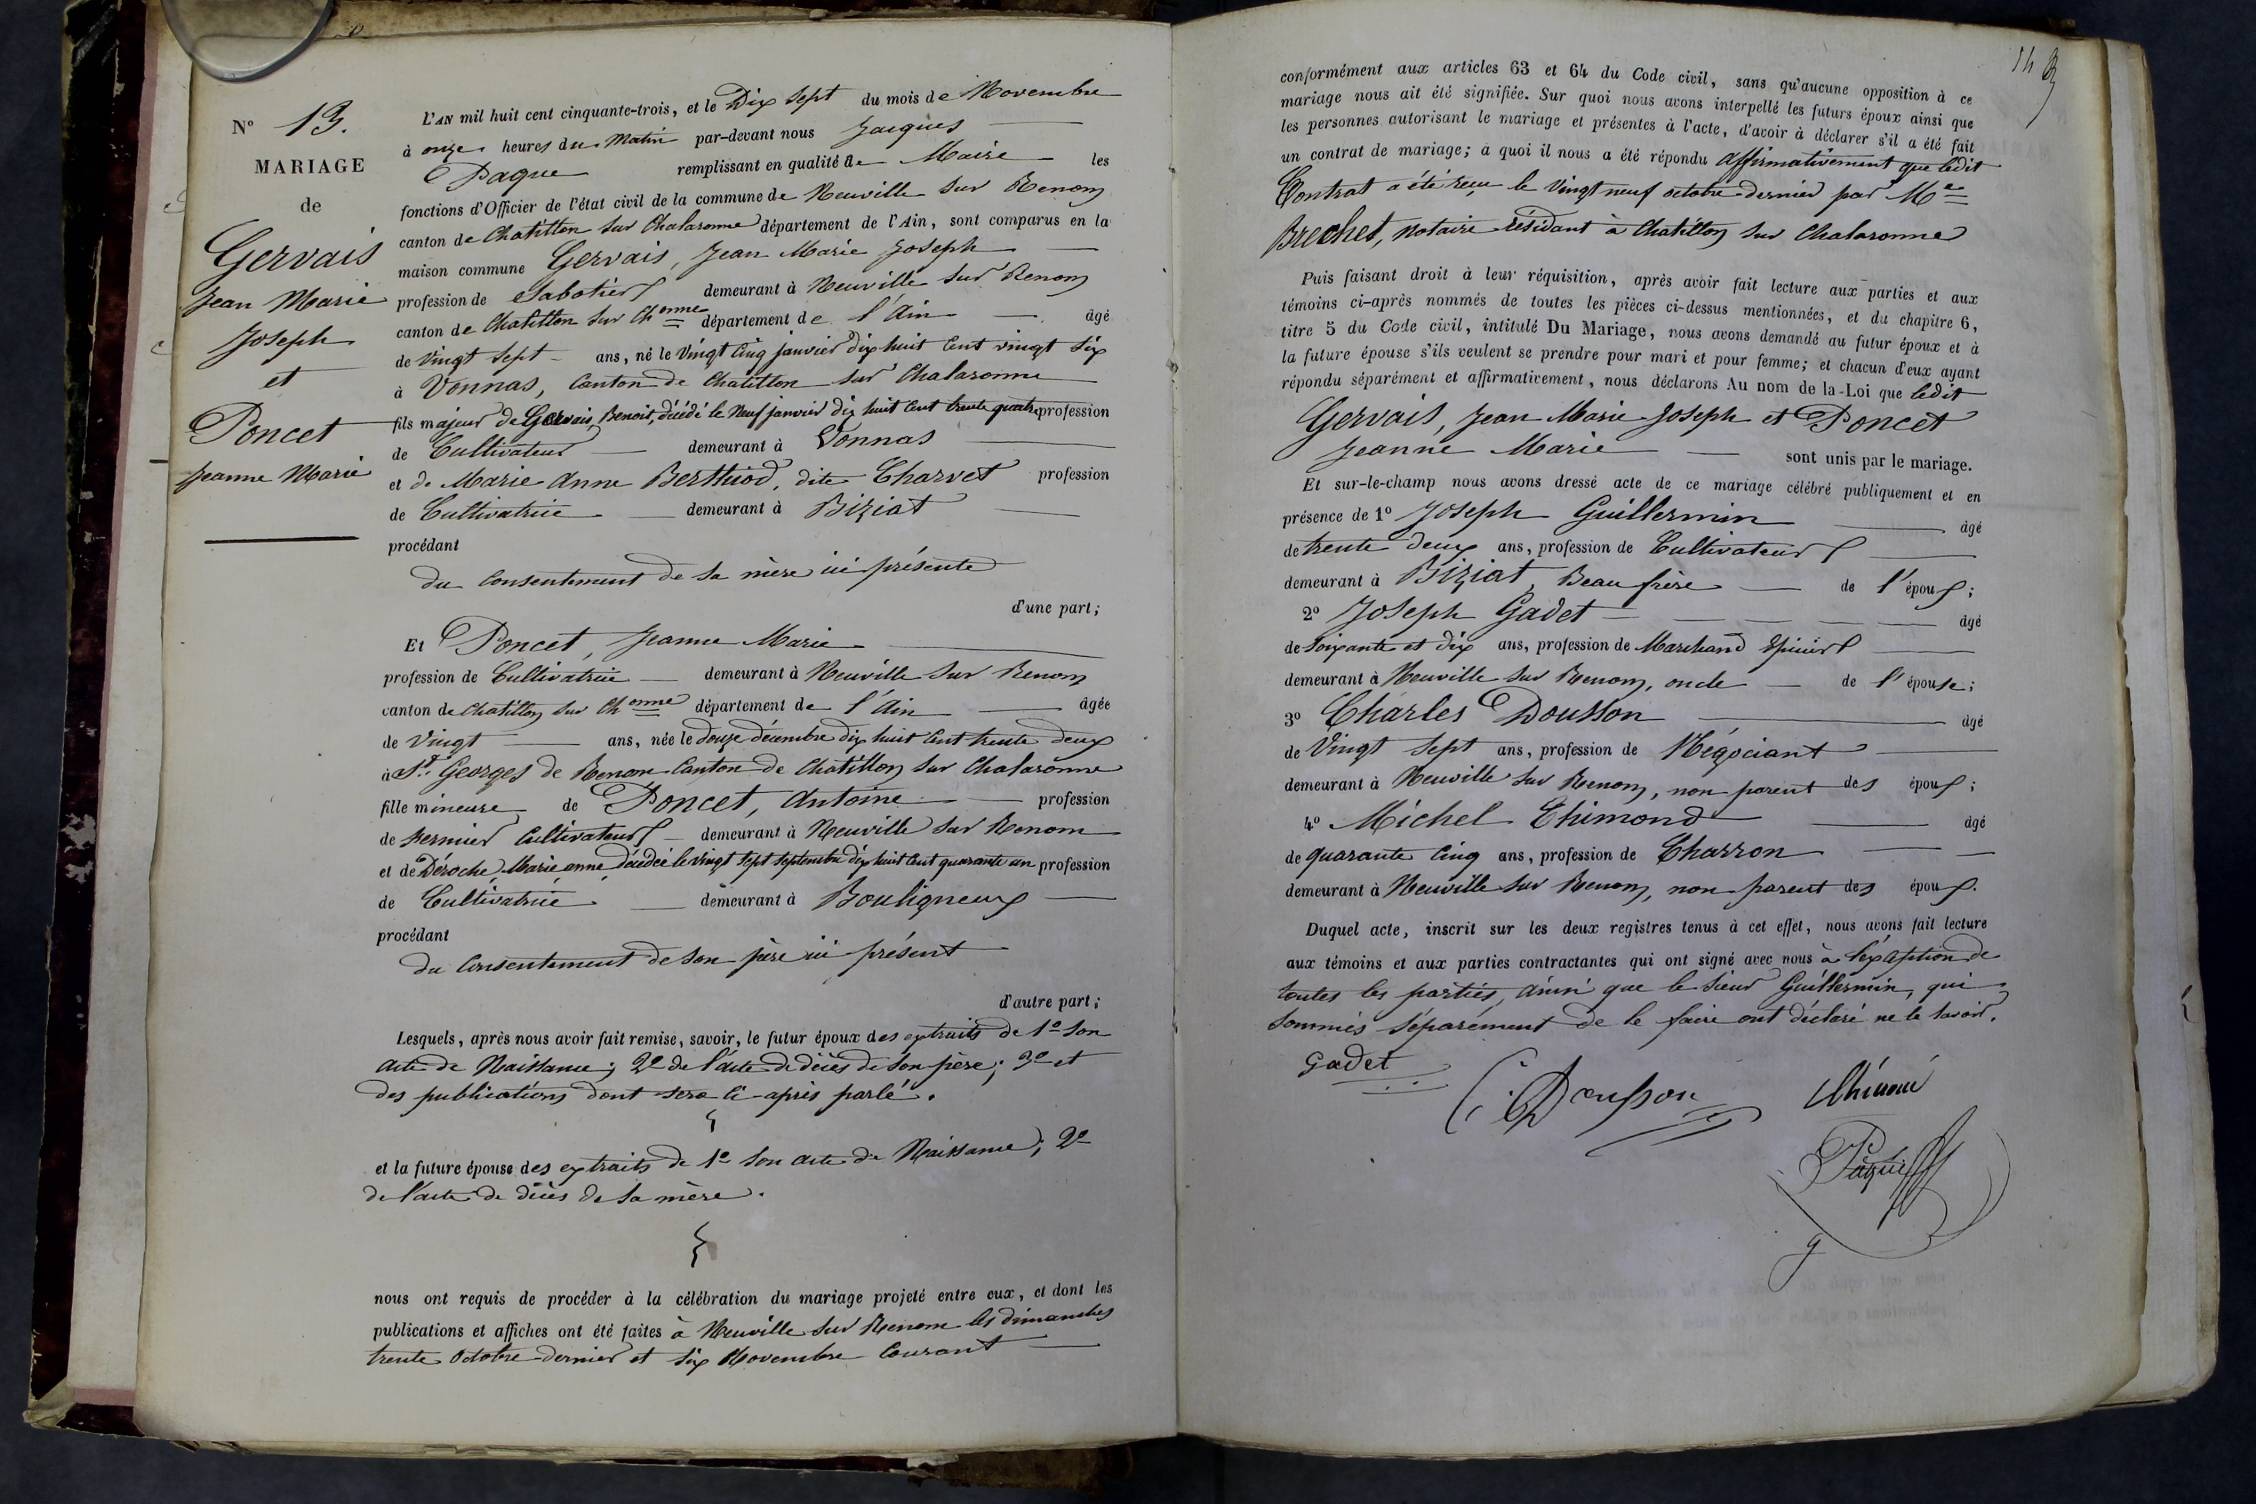 N° 13.
MARIAGE
de
Gervais
Jean Marie
Joseph
et
Poncet
Jeanne Marie
L'AN mil huit cent cinquante-trois, et le Dix Sept du mois de Novembre
à onze heures du Matin par-devant nous Jacques
Paque remplissant en qualité de Maire les
fonctions d'Officier de l'état civil de la commune de Neuville sur Renom
canton de Chatillon sur Chalaronne département de l'Ain, sont comparus en la
maison commune Gervais, Jean Marie Joseph
profession de Sabotier demeurant à Neuville sur Renom
canton de Chatillon sur Chonne département de l'Ain âgé
de vingt sept ans, né le Vingt Cinq janvier dix huit Cent vingt six
à Vonnas, Canton de Chatillon sur Chalaronne
fils majeur de Gervais, Benoit, décédé le Neuf janvier dix huit Cent trente quatre profession
de Cultivateur demeurant à Vonnas
et de Marie Anne Berthiod, dite Charvet profession
de Cultivatrice demeurant à Biziat
procédant
du Consentement de sa mère ici présente
d'une part;
Et Poncet, Jeanne Marie
profession de Cultivatrice demeurant à Neuville sur Renom
canton de Chatillon sur Chonne département de l'Ain âgée
de Vingt ans, née le douze décembre dix huit Cent trente deux
à St. Georges de Renom Canton de Chatillon sur Chalaronne
fille mineure de Poncet, Antoine profession
de fermier Cultivateur demeurant à Neuville sur Renom
et de Déroche Marie anne décédée le vingt sept septembre dix huit Cent quarante un profession
de Cultivatrice demeurant à Bouligneux
procédant
du Consentement de son père ici présent
d'autre part;
Lesquels, après nous avoir fait remise, savoir, le futur époux des extraits de 1° son
acte de Naissance; 2° de l'acte de décès de son père; 3° et
des publications dont sera ci-après parlé.
et la future épouse des extraits de 1° son acte de Naissance; 2°
de l'acte de décès de sa mère.
nous ont requis de procéder à la célébration du mariage projeté entre eux, et dont les
publications et affiches ont été faites à Neuville sur Renom les dimanches
trente Octobre dernier et six Novembre Courant
14
conformément aux articles 63 et 64 du Code civil, sans qu'aucune opposition à ce
mariage nous ait été signifiée. Sur quoi nous avons interpellé les futurs époux ainsi que
les personnes autorisant le mariage et présentes à l'acte, d'avoir à déclarer s'il a été fait
un contrat de mariage; à quoi il nous a été répondu affirmativement que ledit
Contrat a été reçu le Vingt neuf octobre dernier par Me
Brechet, notaire résidant à Chatillon sur Chalaronne
Puis faisant droit à leur réquisition, après avoir fait lecture aux parties et aux
témoins ci-après nommés de toutes les pièces ci-dessus mentionnées, et du chapitre 6,
titre 5 du Code civil, intitulé Du Mariage, nous avons demandé au futur époux et à
la future épouse s'ils veulent se prendre pour mari et pour femme; et chacun d'eux ayant
répondu séparément et affirmativement, nous déclarons Au nom de la Loi que ledit
Gervais, Jean Marie Joseph et Poncet
Jeanne Marie sont unis par le mariage.
Et sur-le-champ nous avons dressé acte de ce mariage célébré publiquement et en
présence de 1° Joseph Guillermin âgé
de trente deux ans, profession de Cultivateur
demeurant à Biziat, Beau frère de l'époux;
2° Joseph Gadet âgé
de soixante et dix ans, profession de Marchand Epicier
demeurant à Neuville sur Renom, oncle de l'épouse;
3° Charles Dousson âgé
de Vingt sept ans, profession de Négociant
demeurant à Neuville sur Renom, non parent des époux;
4° Michel Thimond âgé
de quarante Cinq ans, profession de Charron
demeurant à Neuville sur Renom, non parent des époux.
Duquel acte, inscrit sur les deux registres tenus à cet effet, nous avons fait lecture
aux témoins et aux parties contractantes qui ont signé avec nous à l'éxception de
toutes les parties, ainsi que le sieur Guillermin, qui
sommés séparément de le faire ont déclaré ne le savoir.
Gadet
C. Dousson
Paque